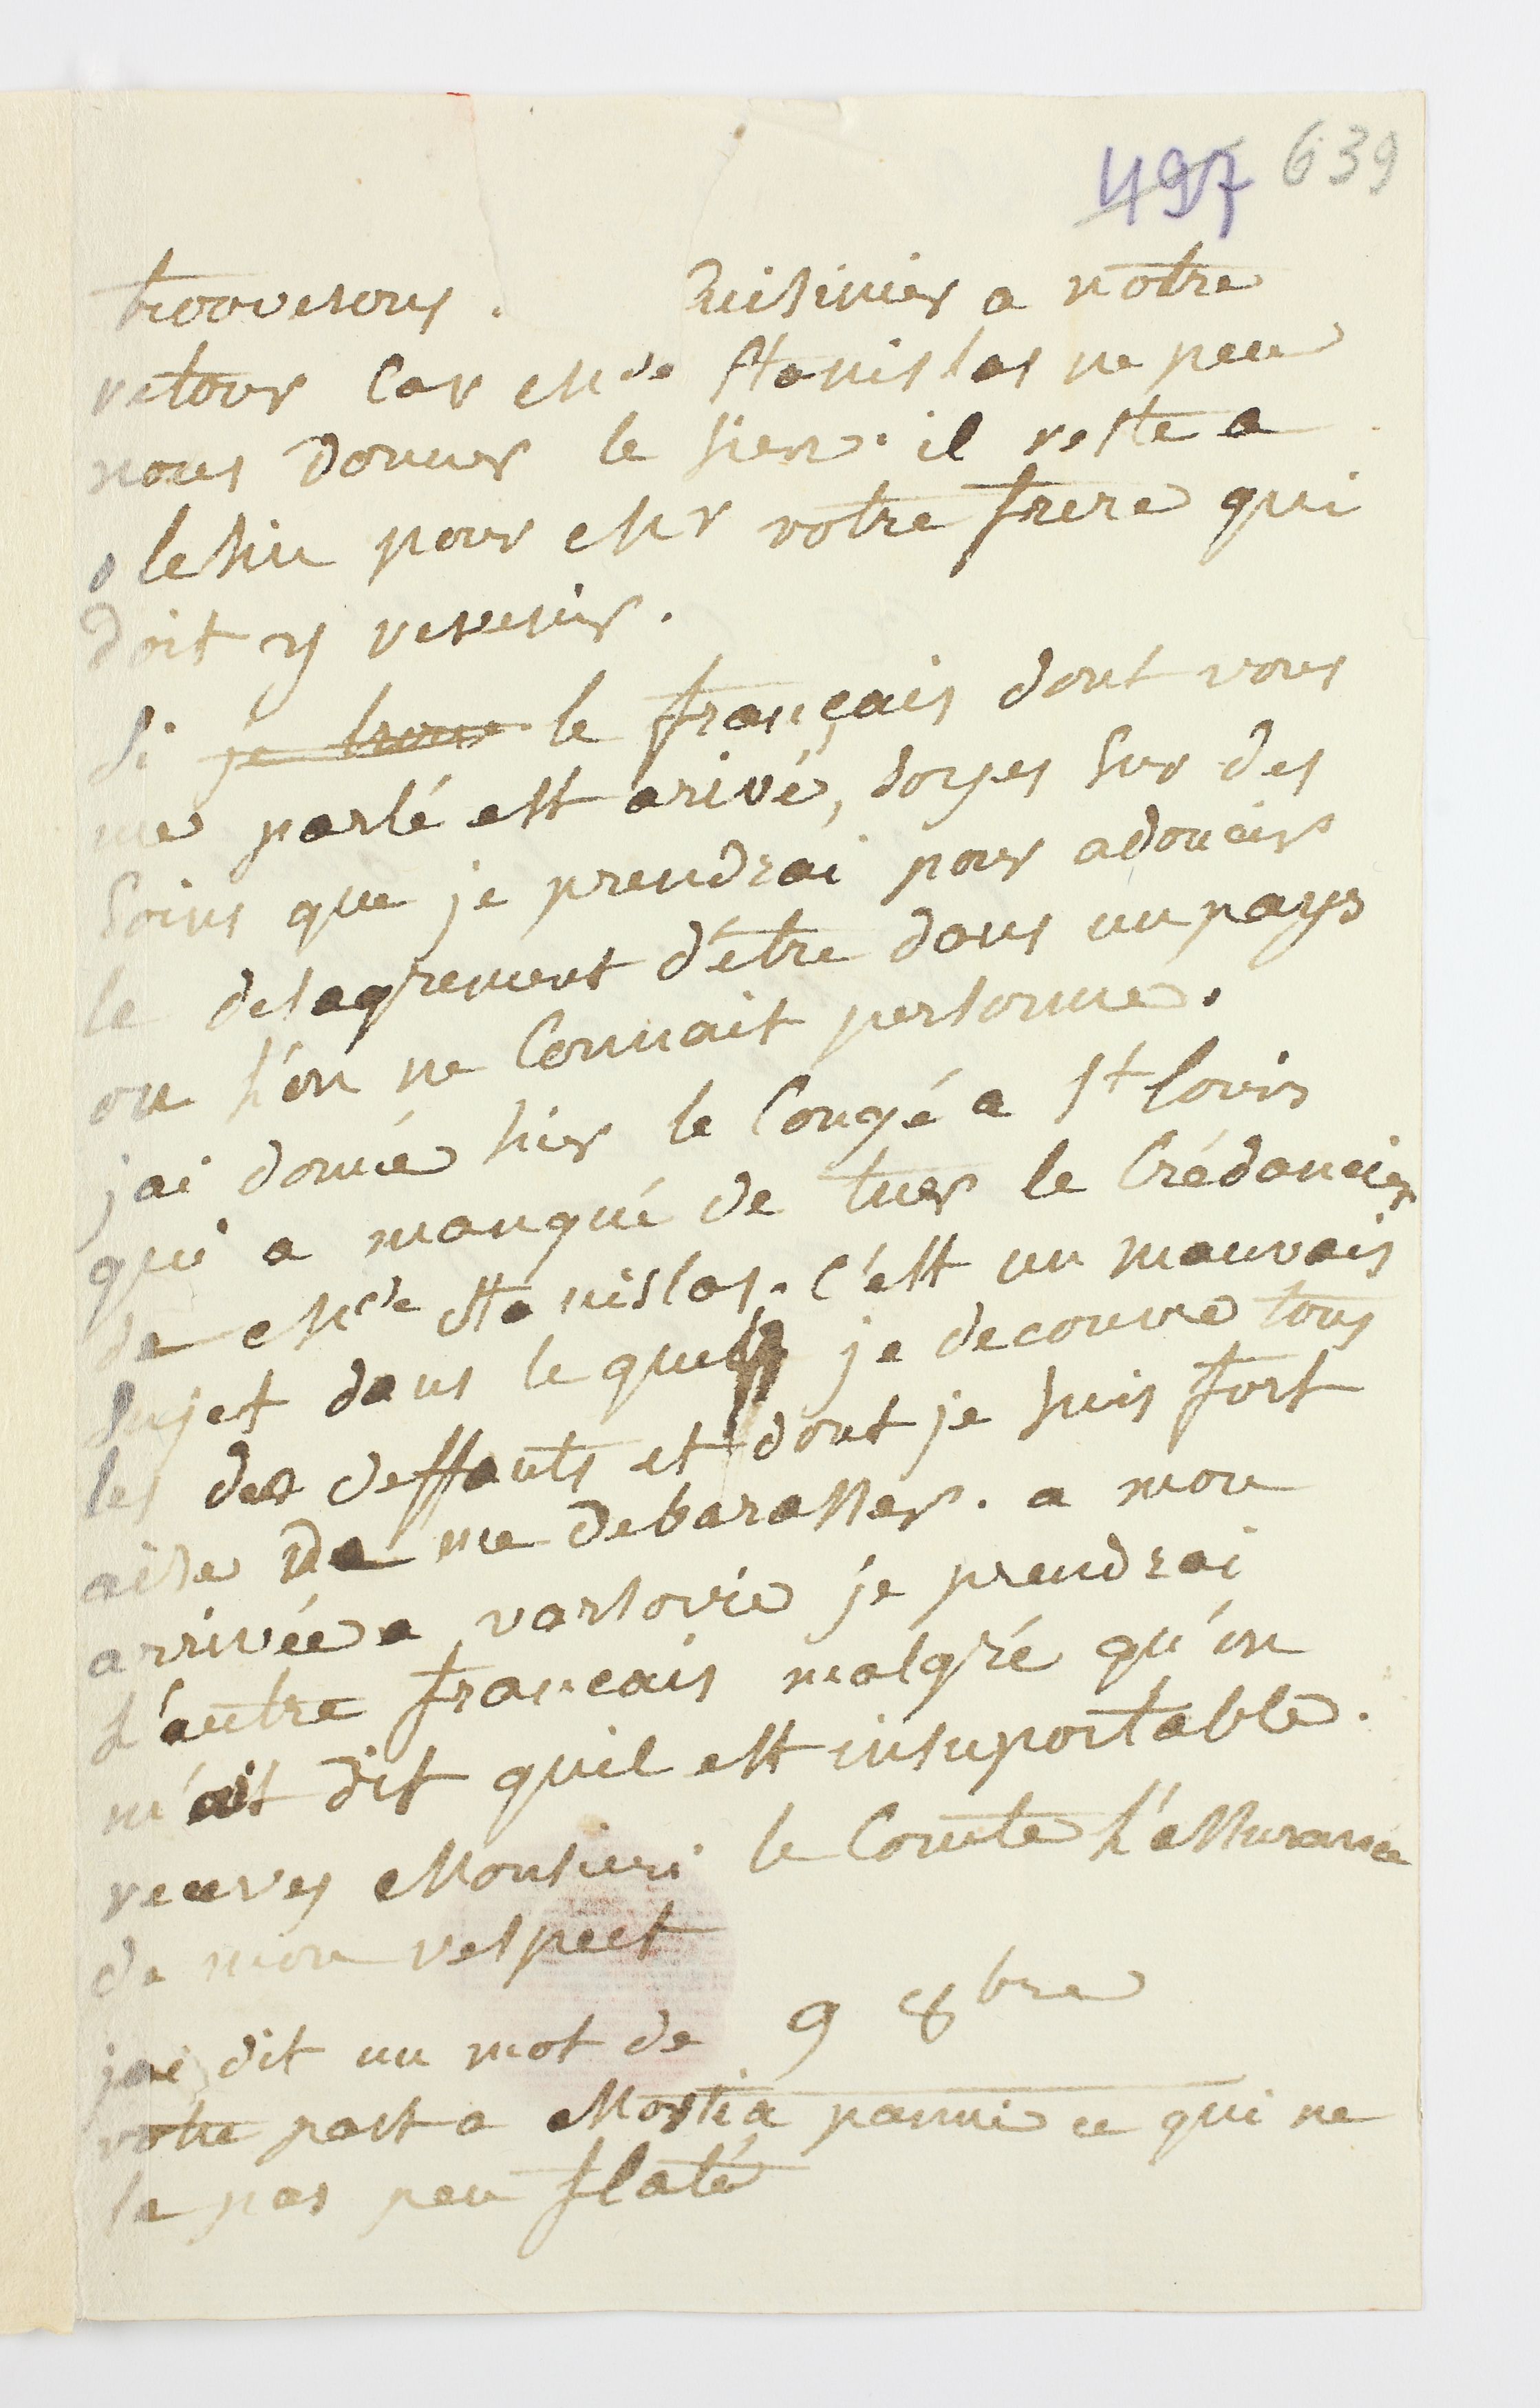 497 639
trouverons. Cuisinier a notre
retour Car Mde Stanislas ne peu
nous donner le sien. il reste a
olesin pour Mr votre frere qui
doit y revenir.
Si je trouve le français dont vous
me parlé est arivé, soyes sur des
soins que je prendrai pour adoucir
le desagrement d'être dans un pays
ou l'on ne Connait personne.
jai donné hier le Congé a St louis
qui a manqué de tuer le Crédancier
de Mde Stanislas. c'est un mauvais
sujet dans le quel je decouvre tous
les des deffauts et dont je suis fort
aise de me debarasser. a mon
arrivée a varsovie je prendrai
l'autre francais malgré qu'on
m'ait dit quil est insuportable.
recevez Monsieur le Comte l'assurance
de mon respect
9 8bre
jai dit un mot de
votre part a panni ce qui ne
la pas peu flaté